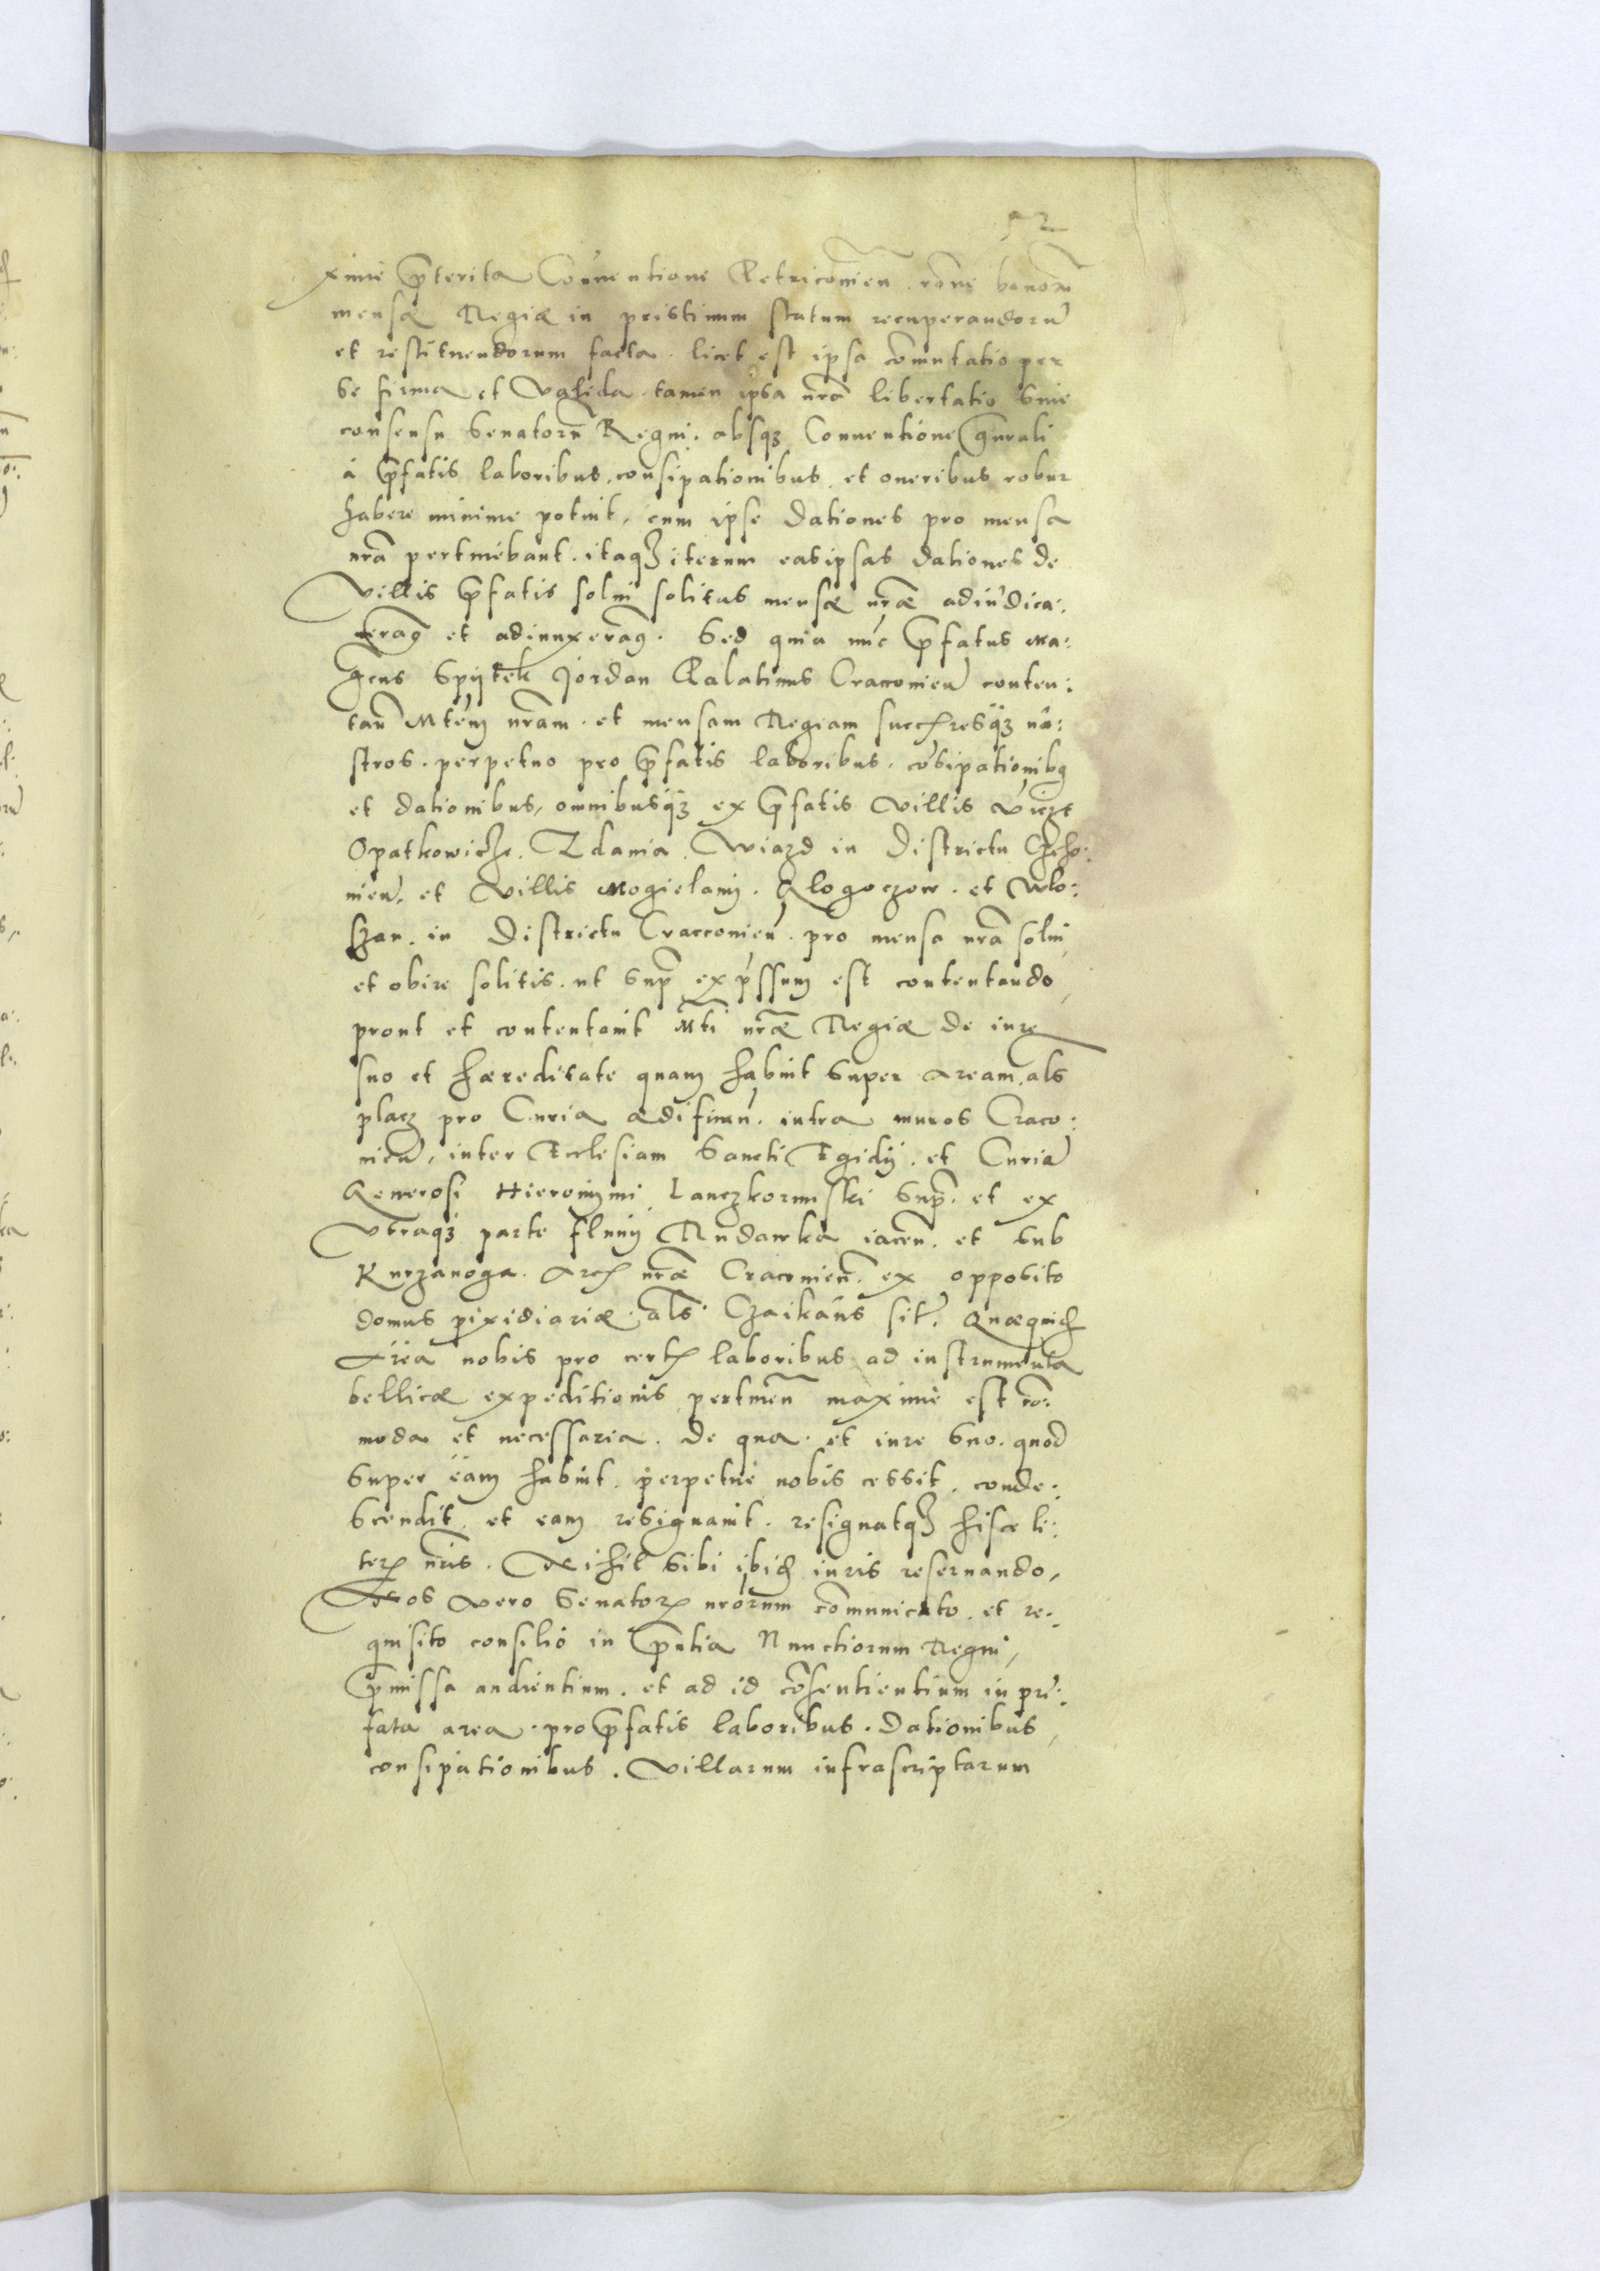 52
xime p̄terita Conuentione Petricouien̄. rōne bonorū
mensæ Regiæ in pristinum statum recuperandorū
et restituendorum facta. licet est ipsa com̄utatio per
se firma et valida tamen ipsa nrā libertatio sine
consensu Senatorū Regni. absqꝫ Conuentione gn̄rali
à p̄fatis laboribus, consipationibus, et oneribus robur
habere minime potuit, cum ipse dationes pro mensa
nrā pertinebant. itaqꝫ iterum easipsas dationes de
Villis p̄fatis solui solitas mensæ nrǣ adiudica:
 et . Sed quia nūc p̄fatus Ma:
gcus Spytek Jordan Palatinus Cracouien̄ conten:
tan̄ Mtem nram. et mensam Regiam succresqꝫ no:
stros. perpetuo pro p̄fatis laboribus. cōsipationibꝰ
et dationibus, omnibusqꝫ ex p̄fatis Villis vicꝫt
Opatkowicze. Zdania. Wiazd in Districtu Czcho:
uien̄. et Villis Mogielany. Glogoczow. et Wlo:
szan. in Districtu Craccouien̄. pro mensa nrā solui
et obire solitis. ut supᵃ expssum est contentando,
prout et contentauit Mti nrǣ Regiæ de iure
suo et hæreditate quam habuit super Aream, als
placz pro Curia ædifican̄. intra muros Craco:
uien̄, inter Ecclesiam Sancti Egidij. et Curiā
Generosi Hieronymi Lanczkorunski supᵃ. et ex
Vtraqꝫ parte fluuij Rudawka iacen̄. et sub
Kurzanoga. Arcꝭ nrǣ Cracouien̄. ex opposito
domus pixidiariæ. als Czaikaus sit̄. Quæquid̄
Area nobis pro certꝭ laboribus ad instrumenta
bellicæ expeditionis pertinen̄ maxime est cō:
moda et necessaria. De qua. et iure suo. quod
super eam habuit. perpetue nobis cessit. conde:
scendit. et eam resignauit. resignatqꝫ hisce li:
terꝭ nris̄. Nihil sibi ibid̄ iuris reseruando,
Nos vero Senatorꝫ nrorum com̄unicato. et re:
quisito consilio in p̄ntia Nunctiorum Regni,
p̄missa audientium. et ad id cōsentientium in præ:
fata area. pro p̄fatis laboribus. dationibus,
consipationibus. Villarum infrascriptarum